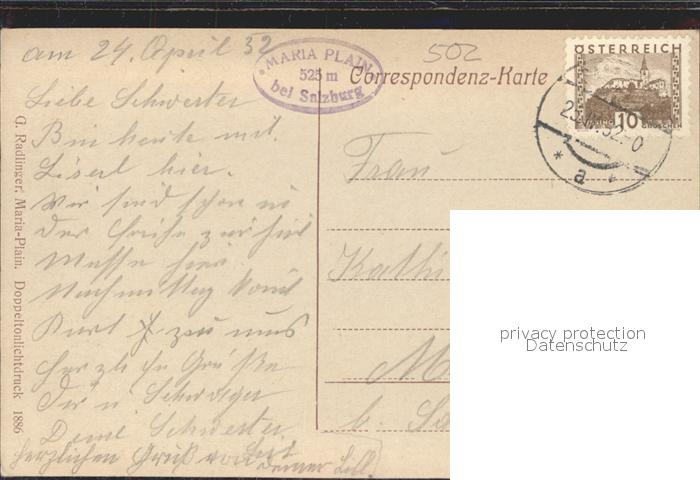 am 24. April 32
MARIA PLAIN
525 m
bei Salzburg
502
Correspondenz-Karte
ÖSTERREICH
10
GROSCHEN
a
Liebe Schwester
Bin heute mit
Liserl hier.
Wir sind schon in
der Frühe zur hl
Messe hier.
Nachmittag kommt
Kurt zu uns
herzliche Grüße
Dir u Schwager
Deine Schwester
herzlichen Gruß von
Deiner
Frau
Kathi
G. Radlinger, Maria-Plain. Doppeltonlichtdruck 1886
privacy protection
Datenschutz